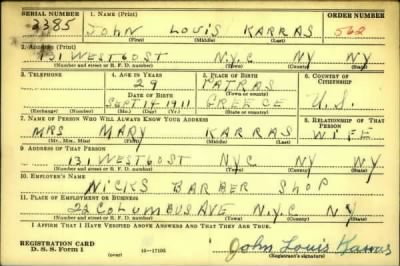 SERIAL NUMBER 1. NAME (Print) ORDER NUMBER
2385 JOHN LOUIS KARRAS 562
(First) (Middle) (Last)
2. ADDRESS (Print)
131 WEST 60ST N.Y.C NY NY
(Number and street or R. F. D. number) (Town) (County) (State)
3. TELEPHONE 4. AGE IN YEARS 5. PLACE OF BIRTH 6. COUNTRY OF CITIZENSHIP
29 PATRAS
DATE OF BIRTH (Town or county)
SEPT 14 1911 GREECE U.S.
(Exchange) (Number) (Mo.) (Day) (Yr.) (State or country)
7. NAME OF PERSON WHO WILL ALWAYS KNOW YOUR ADDRESS 8. RELATIONSHIP OF THAT PERSON
MRS MARY KARRAS WIFE
(Mr., Mrs., Miss) (First) (Middle) (Last)
9. ADDRESS OF THAT PERSON
131 WEST 60ST NYC NY NY
(Number and street or R. F. D. number) (Town) (County) (State)
10. EMPLOYER'S NAME
NICKS BARBER SHOP
11. PLACE OF EMPLOYMENT OR BUSINESS
22 COLUMBUS AVE N.Y.C NY
(Number and street or R. F. D. number) (Town) (County) (State)
I AFFIRM THAT I HAVE VERIFIED ABOVE ANSWERS AND THAT THEY ARE TRUE.
REGISTRATION CARD
D. S. S. Form 1 16—17105 John Louis Karras
(Registrant's signature)